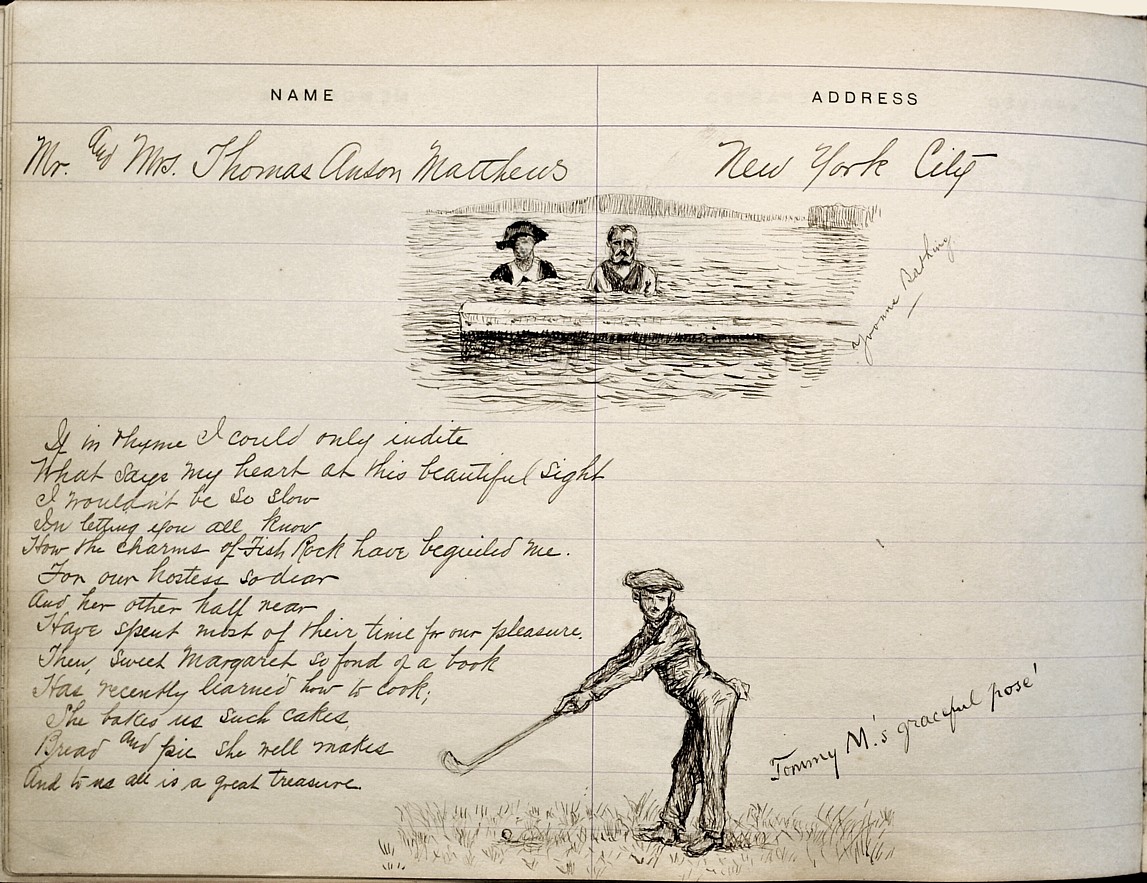 NAME ADDRESS
Mr. and Mrs. Thomas Anson Matthews New York City
Bathing
If in rhyme I could only indite
What says my heart at this beautiful sight
I wouldn't be so slow
In letting you all know
How the charms of Fish Rock have beguiled me.
For our hostess so dear
And her other half near
Have spent most of their time for our pleasure.
Then, sweet Margaret so fond of a book
Has recently learned how to cook;
She bakes us such cakes
Bread and pie she well makes
And to us all is a great treasure.
Tommy M.'s graceful pose'